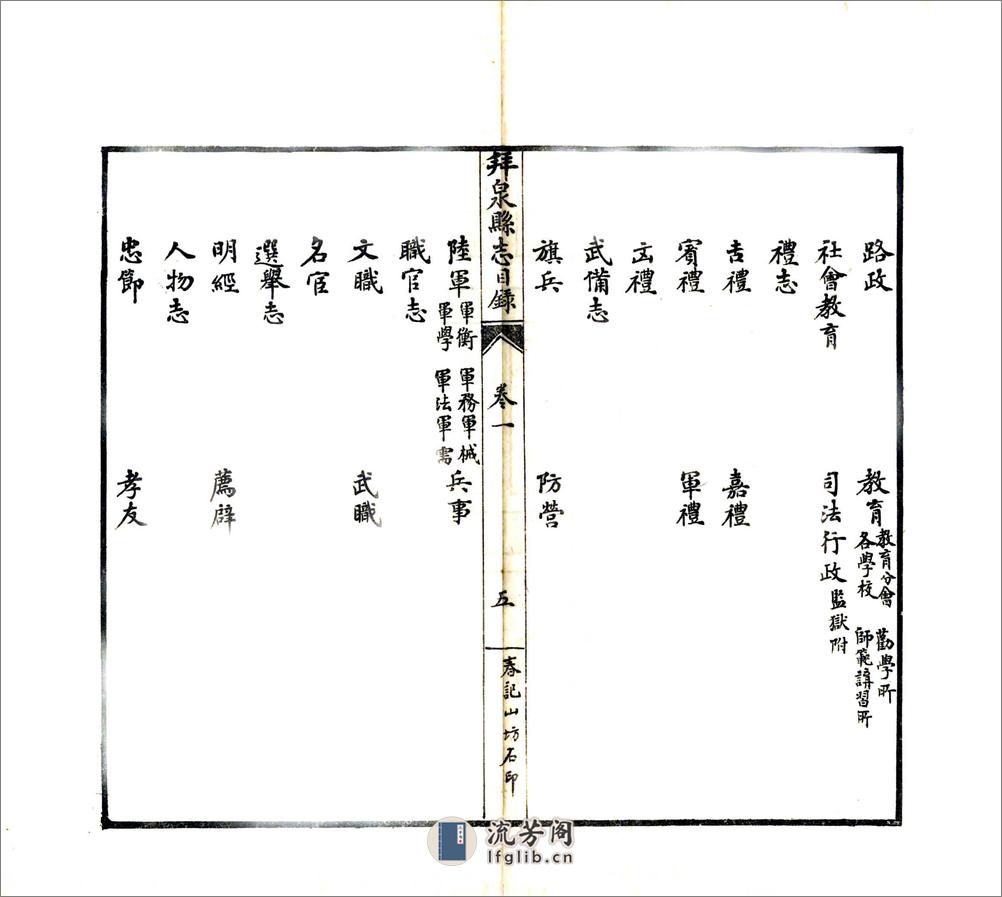 路政　教育　教育分會　勸學所　各學校　師範講習所
社會教育　司法行政　監獄附
禮志
吉禮　嘉禮
賓禮　軍禮
凶禮
武備志
旗兵　防營
拜泉縣志目錄　卷一　五　春記山坊石印
陸軍　軍衡　軍務軍械　軍學　軍法軍需　兵事
職官志
文職　武職
名宦
選舉志
明經　薦辟
人物志
忠節　孝友
流芳阁
lfglib.cn